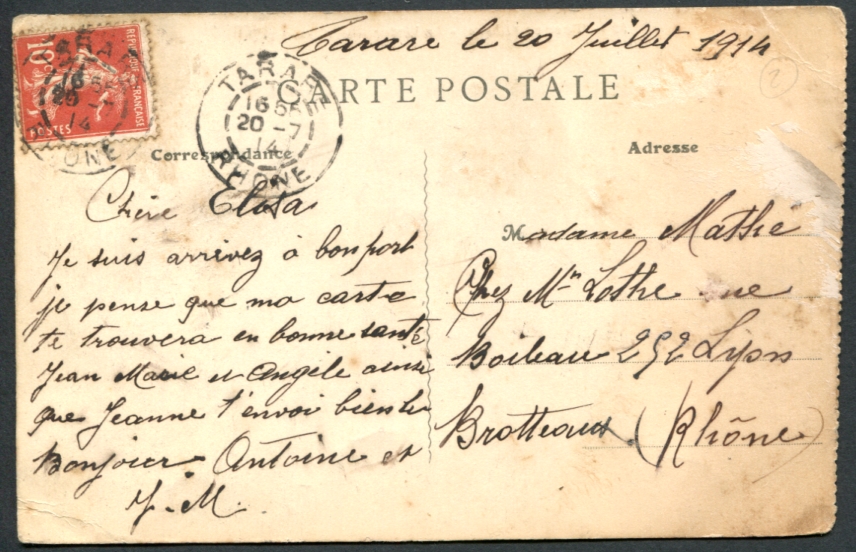 Tarare le 20 Juillet 1914
CARTE POSTALE
REPUBLIQUE FRANÇAISE
10
POSTES
TARARE
16
20 - 7
14
RHONE
Correspondance
Adresse
2
Chère Elosa
Je suis arrivez à bon port
je pense que ma carte
te trouvera en bonne santé
Jean Marie et Angèle ainsi
que Jeanne t'envoi bien le
Bonjour Antoine et
J. M.
Madame Mathé
Chez Mm Lothe rue
Boileau 252 Lyon
Brotteaux (Rhône)